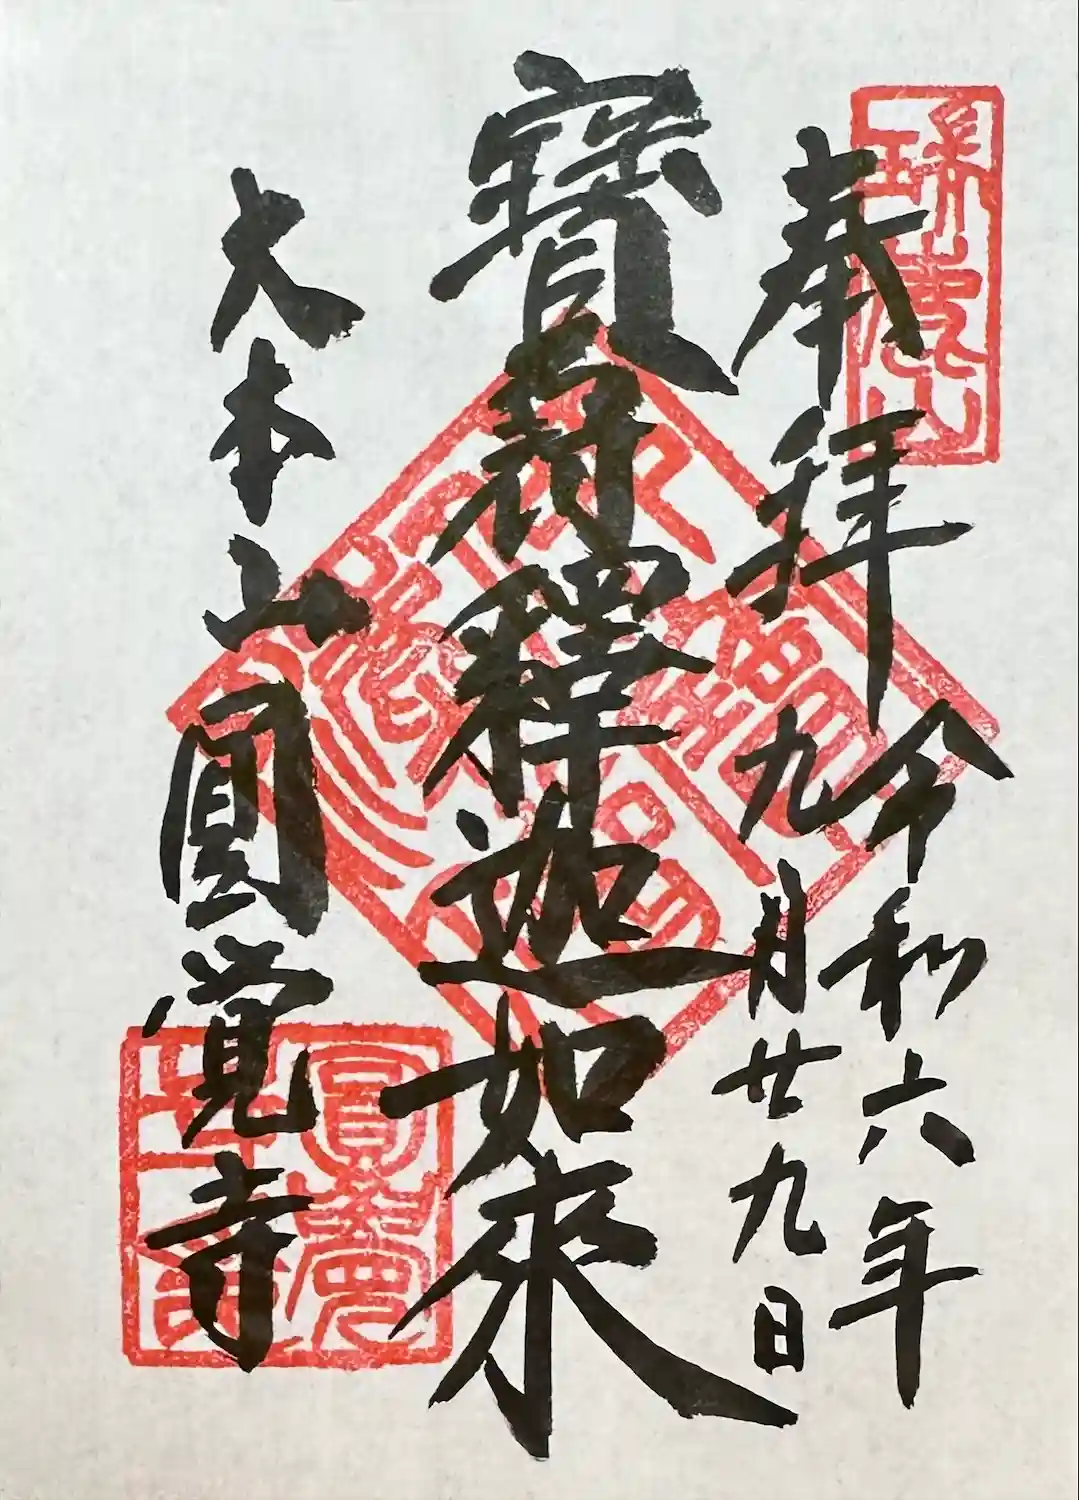 瑞鹿山
奉拝
令和六年
九月廿九日
寶冠釋迦如來
大本山圓覚寺